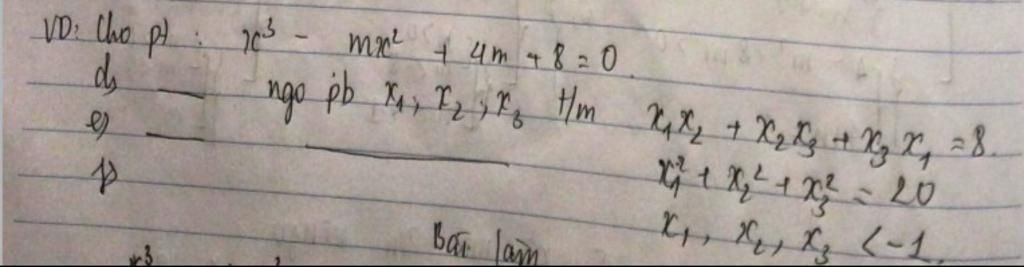 VD: Cho pt : x³ - mx² + 4m + 8 = 0.
d, __ ngo pb x₁, x₂, x₃ t/m x₁x₂ + x₂x₃ + x₃x₁ = 8.
e, __ ____ x₁² + x₂² + x₃² = 20
f, x₁, x₂, x₃ < -1.
Bài làm
x³